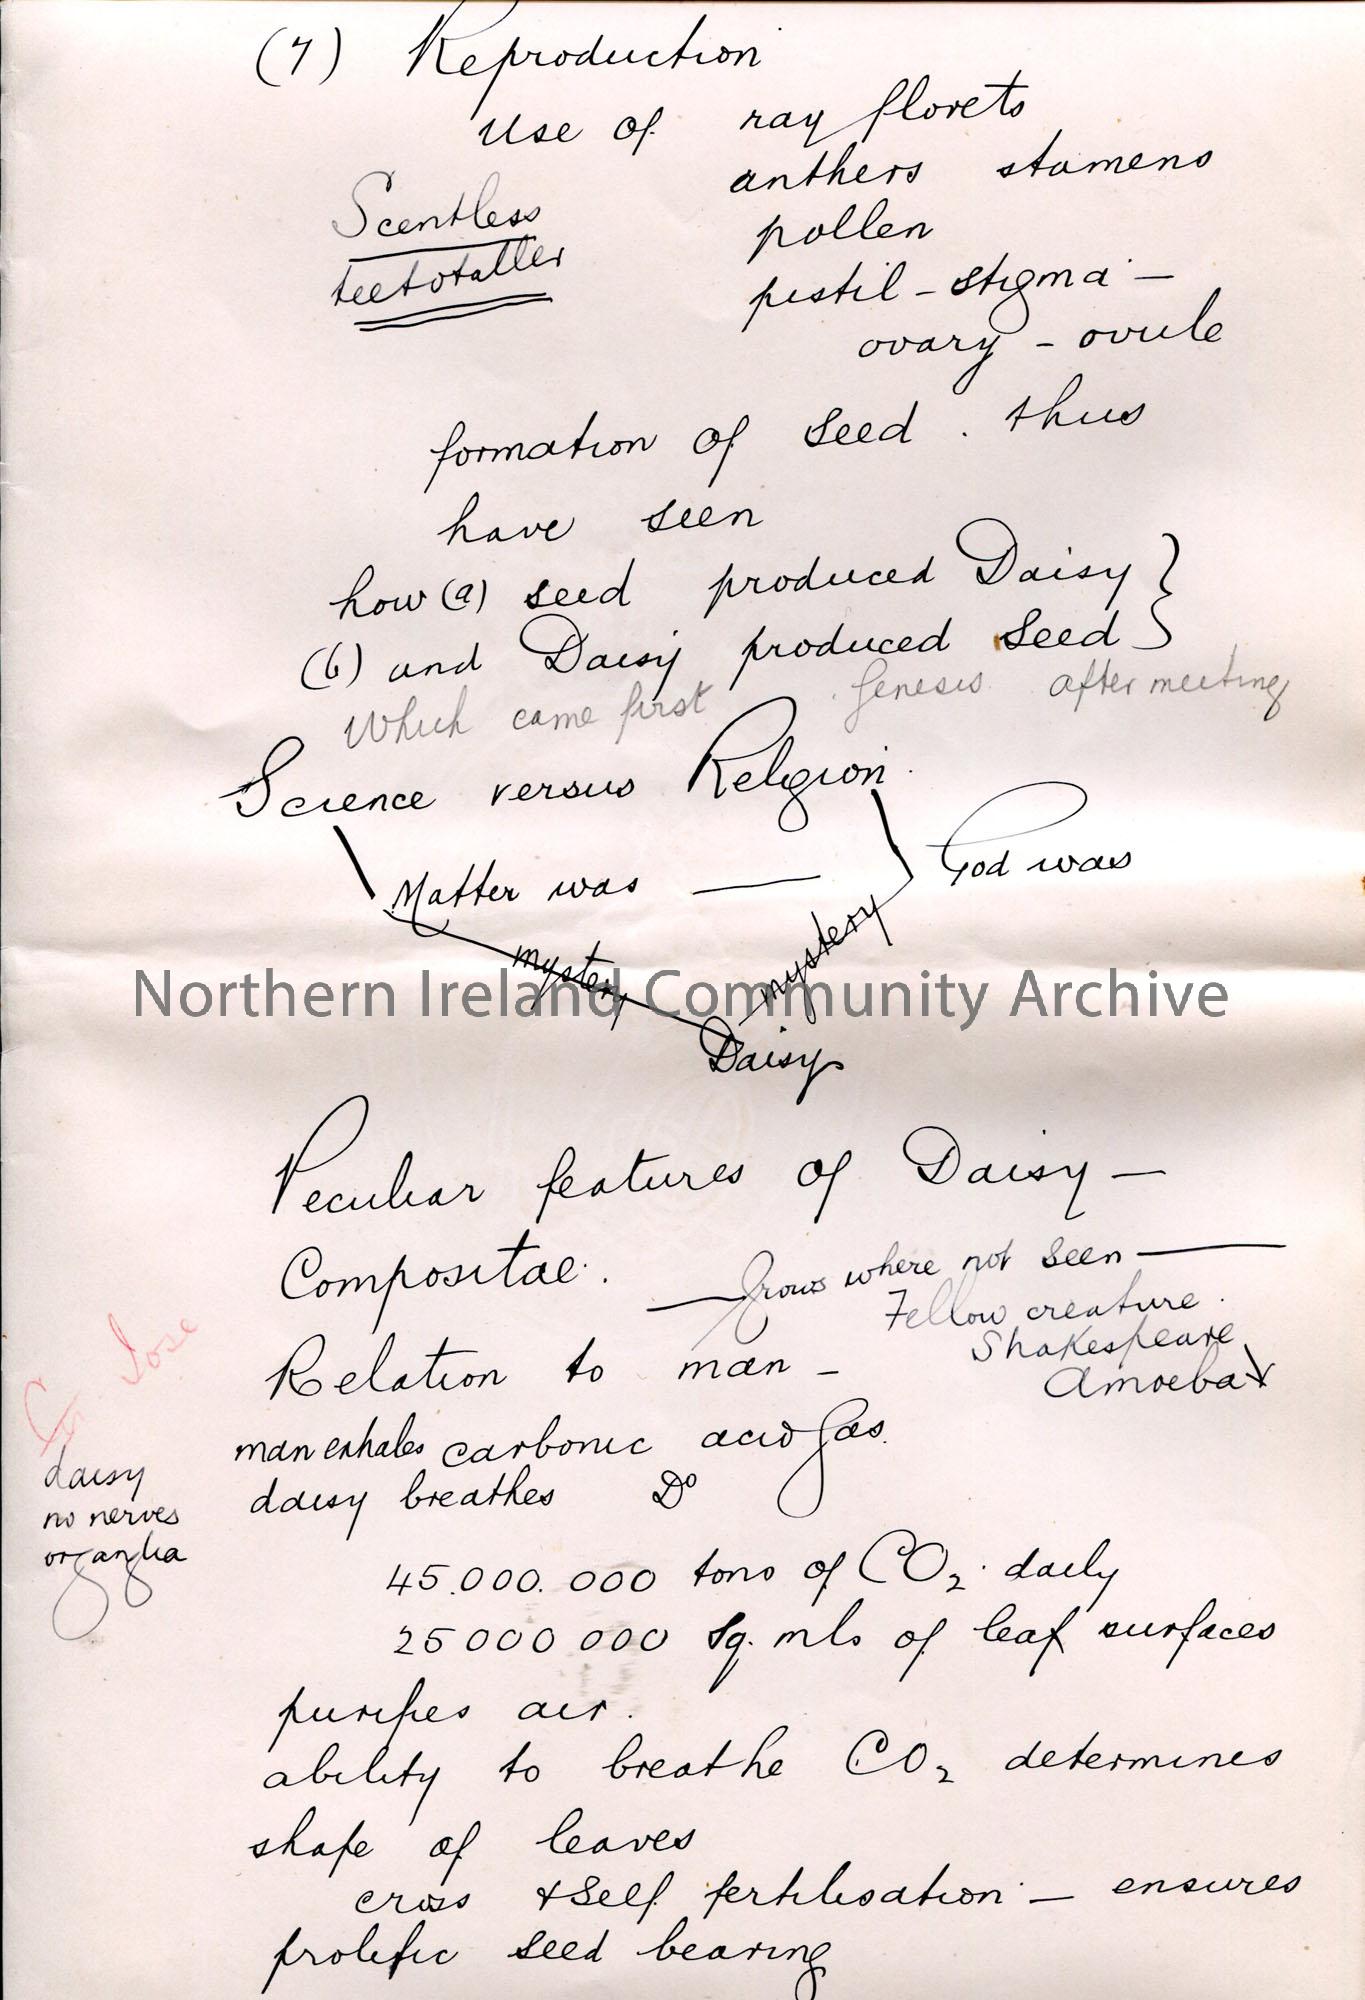 (7) Reproduction
Use of ray florets
anthers stamens
Scentless
pollen
teetotaller
pistil - stigma -
ovary - ovule
formation of seed. thus
have seen
how (a) seed produced Daisy }
(b) and Daisy produced Seed }
Which came first Genesis after meeting
Science versus Religion.
Matter was — God was
mystery mystery
Northern Ireland Community Archive
Daisy
Peculiar features of Daisy —
Compositae.
— Grows where not seen —
Fellow creature.
Shakespeare
Amoeba
Relation to man -
man exhales carbonic acid gas.
daisy breathes Do
daisy
no nerves
or ganglia
45.000.000 tons of CO2. daily
25000000 Sq. mls of leaf surfaces
purifies air.
ability to breathe CO2 determines
shape of leaves
cross & self fertilisation — ensures
prolific seed bearing